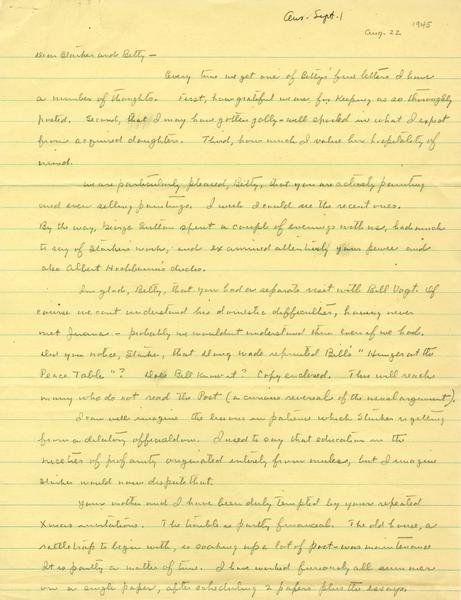 Ans. Sept. 1
Aug. 22 1945
Dear Starker and Betty —
Every time we get one of Betty's fine letters I have
a number of thoughts. First, how grateful we are for keeping us so thoroughly
posted. Second, that I may have gotten well spoiled in what I expect
from acquired daughters. Third, how much I value her hospitality of
mind.
We are particularly pleased, Betty, that you are actively painting
and even selling paintings. I wish I could see the recent ones.
By the way, George Sutton spent a couple of evenings with us, had much
to say of Starker's work, and examined attentively your and
also Albert Hochbaum's ducks.
I'm glad, Betty, that you had a separate visit with Bill Vogt. Of
course we can't understand his domestic difficulties, having never
met Juana — probably we wouldn't understand them even if we had.
Did you notice, Starker, that reprinted Bill's "Hunger at the
Peace Table"? Does Bill know it? Copy enclosed. This will reach
many who do not read the Post (a curious reversal of the usual argument).
I can well imagine the lessons in patience which Starker is getting
from a dilatory officialdom. I used to say that education in the
niceties of profanity originated entirely from mules, but I imagine
Starker would now dispute that.
Your mother and I have been duly tempted by your repeated
Xmas invitations. The trouble is partly financial. The old house, a
rattletrap to begin with, is soaking up a lot of post-war maintenance.
It is partly a matter of time. I have worked furiously all summer
on a single paper, after scheduling 2 papers plus the essays.